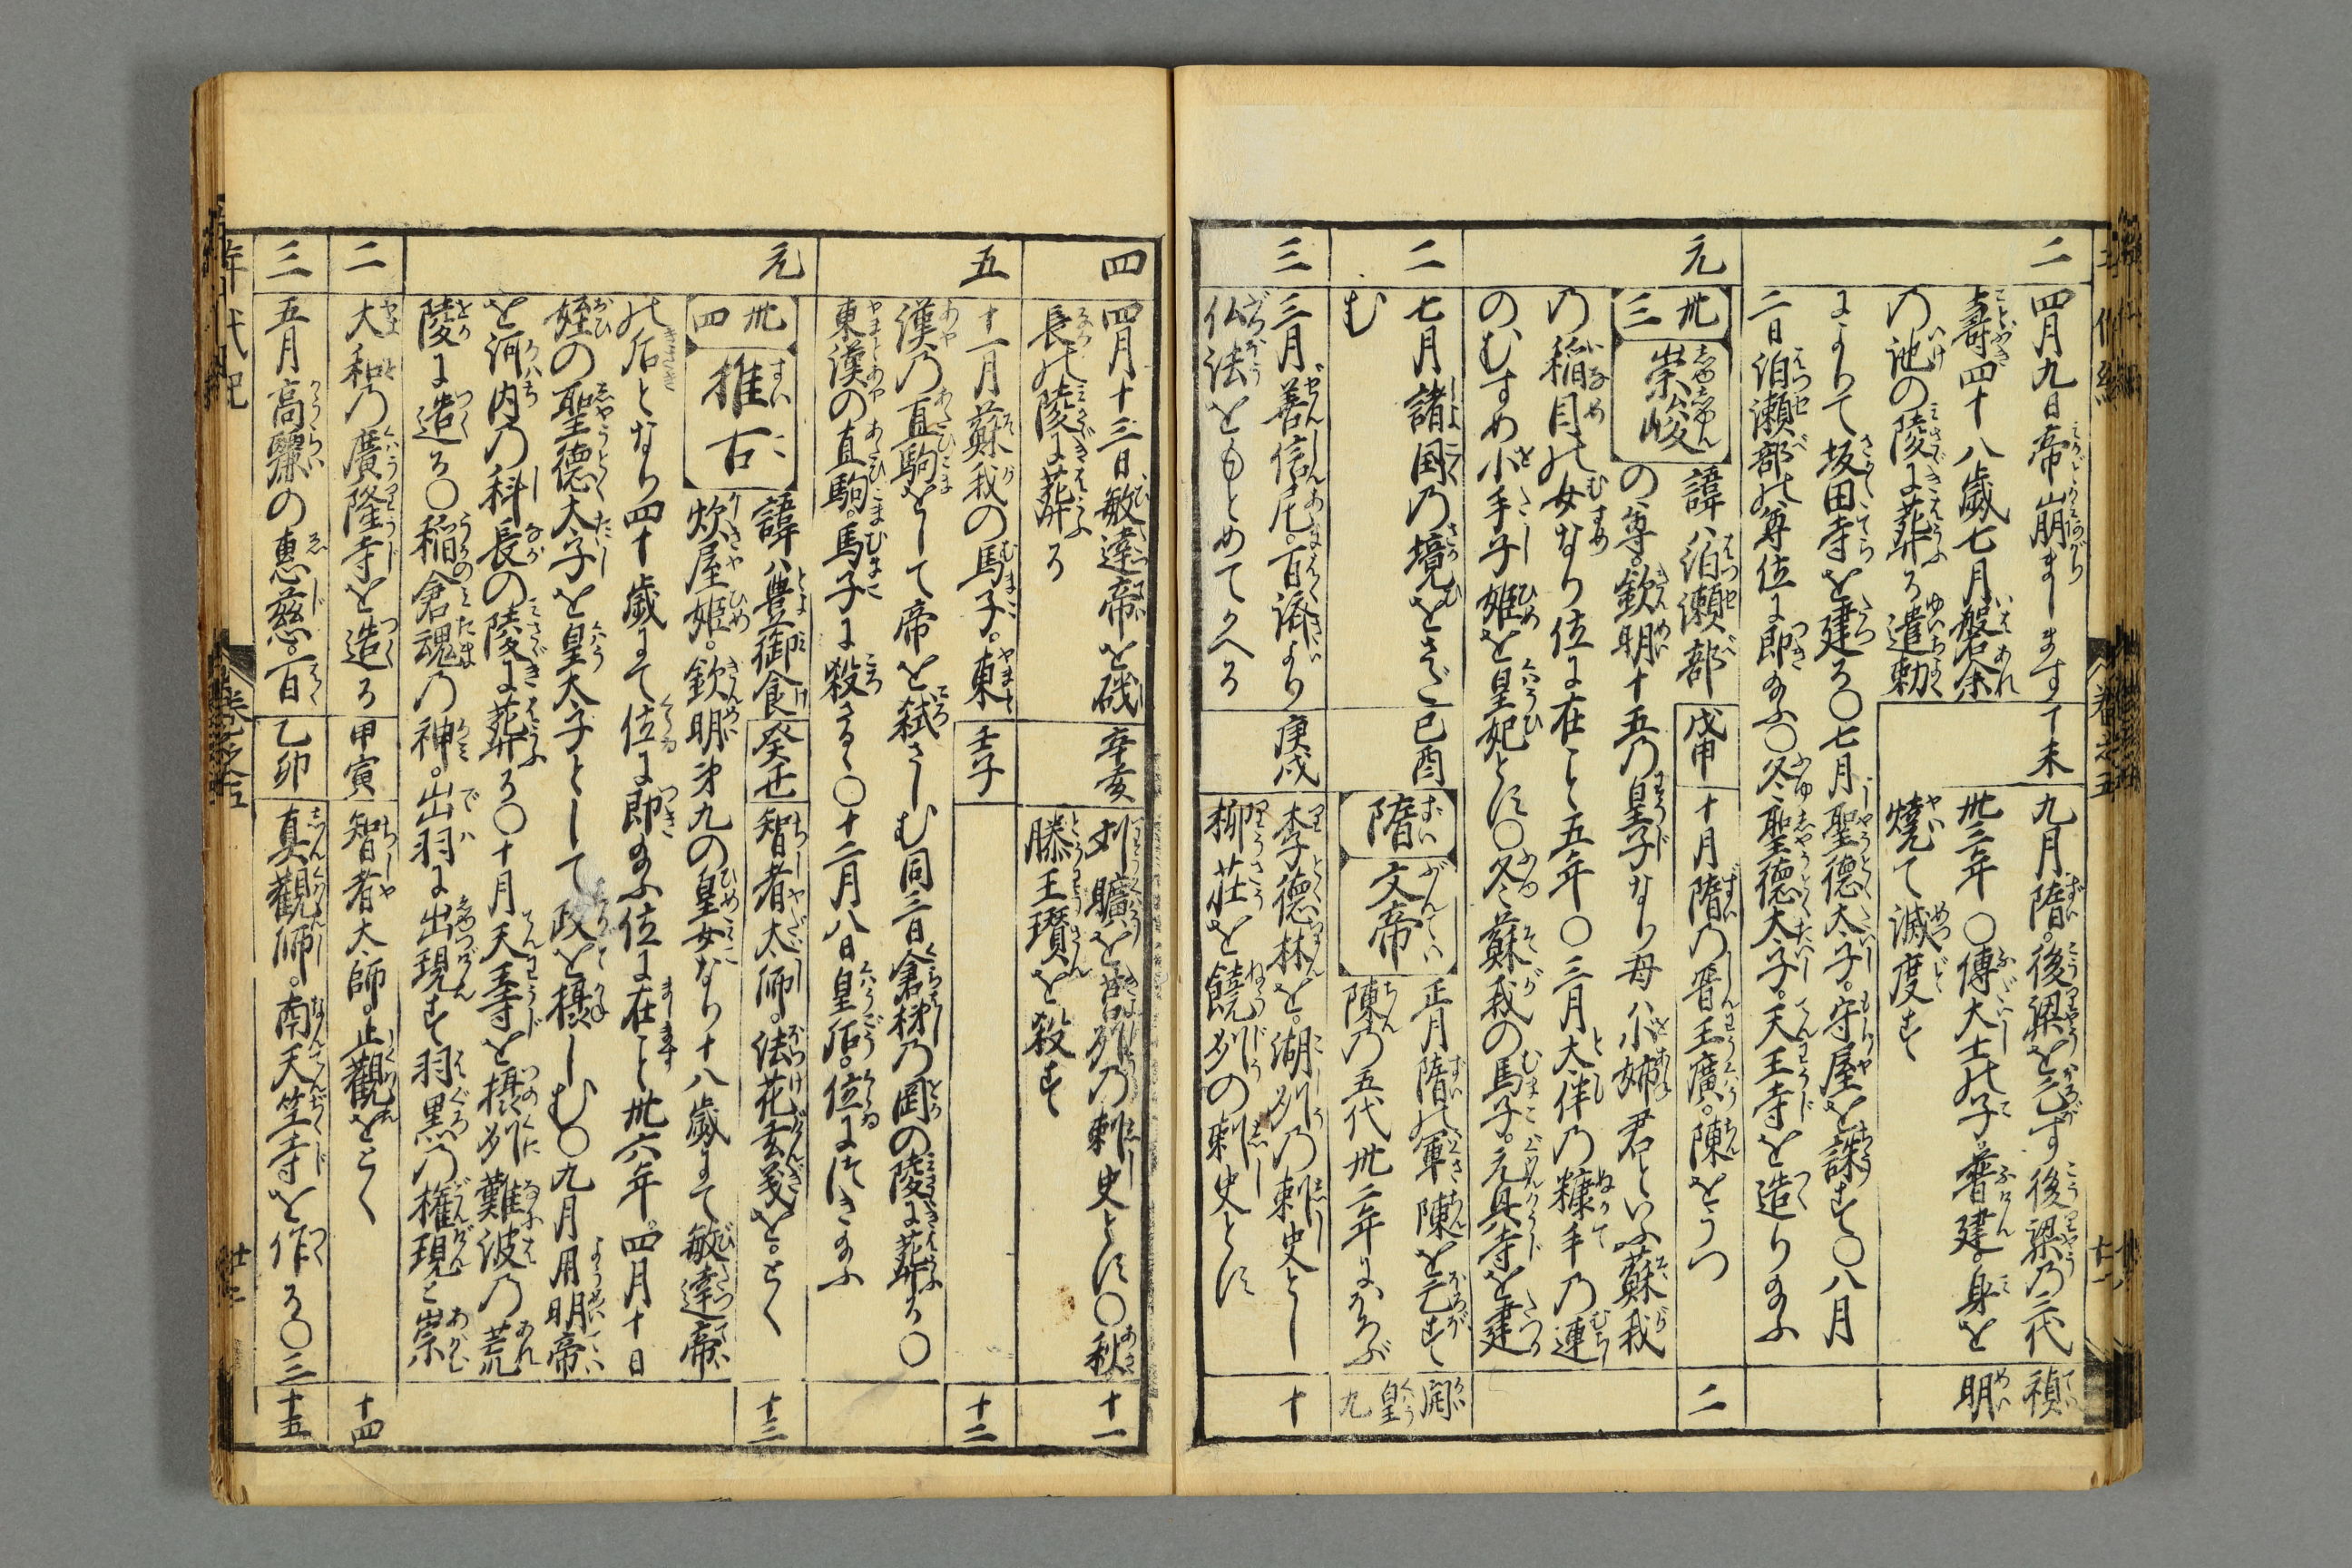 二
四月九日帝崩まします
丁未
九月隋。後梁を亡す後梁乃二代
禎
壽四十八歳七月磐余
卅三年〇傅大士の子普建。身を
明
乃池の陵に葬る遣勅
焼て滅度す
によりて坂田寺を建る〇七月聖徳太子。守屋を誅す〇八月
二日泊瀬部の尊位に即給ふ〇冬聖徳太子。天王寺を造り給ふ
元
卅三
崇峻
諱ハ泊瀬部
戊申
十月隋乃晋王廣。陳をうつ
二
の尊。欽明十五乃皇子なり母ハ小姉君といふ蘇我
乃稲目の女なり位に在こと五年〇三月大伴乃糠手乃連
のむすめ小手子姫を皇妃とす〇冬蘇我の馬子。元具寺を建
二
七月諸国乃境をさだ
己酉
隋
文帝
正月隋の軍陳を亡す
開
む
陳乃五代卅二年にほろぶ
皇
九
三
三月善信尼。百済より
庚戌
李徳林を。湖州乃刺史とし
十
仏法をもとめてかへる
柳荘を饒州の刺史とす
四
四月十三日敏達帝を磯
辛亥
刘曠を莒州乃刺史とす〇秋
十一
長の陵に葬る
滕王瓚を殺す
五
十一月蘇我の馬子。東
壬子
十二
漢乃直駒をして帝を弑さしむ同三日倉梯乃岡の陵に葬る〇
東漢の直駒。馬子に殺さる〇十二月八日皇后。位につき給ふ
元
卅四
推古
諱ハ豊御食
癸丑
智者大師。法花玄義を。とく
十三
炊屋姫。欽明第九の皇女なり十八歳にて敏達帝
の后となり四十歳にて位に即給ふ位に在こと卅六年。四月十日
姪の聖徳太子を皇太子として政を摂しむ〇九月用明帝
を河内乃科長の陵に葬る〇十月天王寺を摂州難波乃荒
陵に造る〇稲倉魂乃神。出羽に出現す羽黒乃権現と崇
二
大和乃廣隆寺を造る
甲寅
智者大師。止觀をとく
十四
三
五月高麗の惠慈。百
乙卯
真觀師。南天竺寺を作る〇三
十五
年代紀
巻之五
廿二